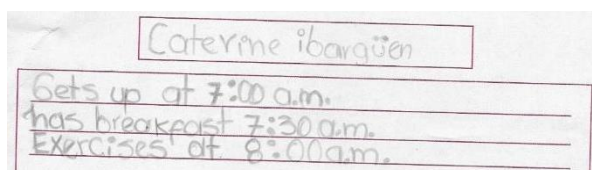 Caterine ibargüen
Gets up at 7:00 a.m.
has breakfast 7:30 a.m.
Exercises at 8:00 a.m.